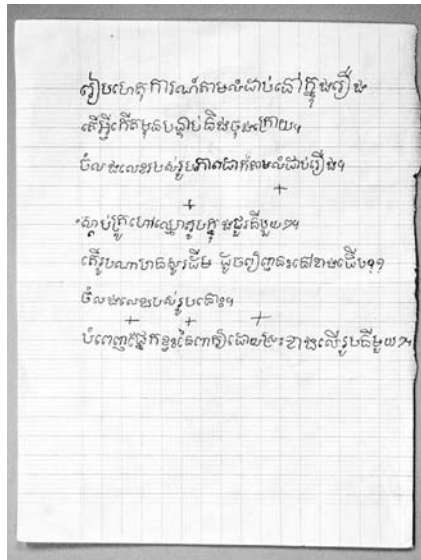 រៀបហេតុការណ៍តាមលំដាប់នៅក្នុងរឿង
តើអ្វីកើតមុនបន្ទាប់និងចុងក្រោយ។
ចំលងលេខរបស់រូបភាពដាក់តាមលំដាប់រឿង។
ស្តាប់គ្រូហៅឈ្មោះរូបក្នុងជួរនីមួយៗ។
តើរូបណាមានសូរដើម ដូចព្យញ្ជនះនៅខាងដើម??
ចំលងលេខរបស់រូបនោះ។
បំពេញផ្នែកខ្វះនៃពាក្យដោយស្រះខាងលើរូបនីមួយៗ។